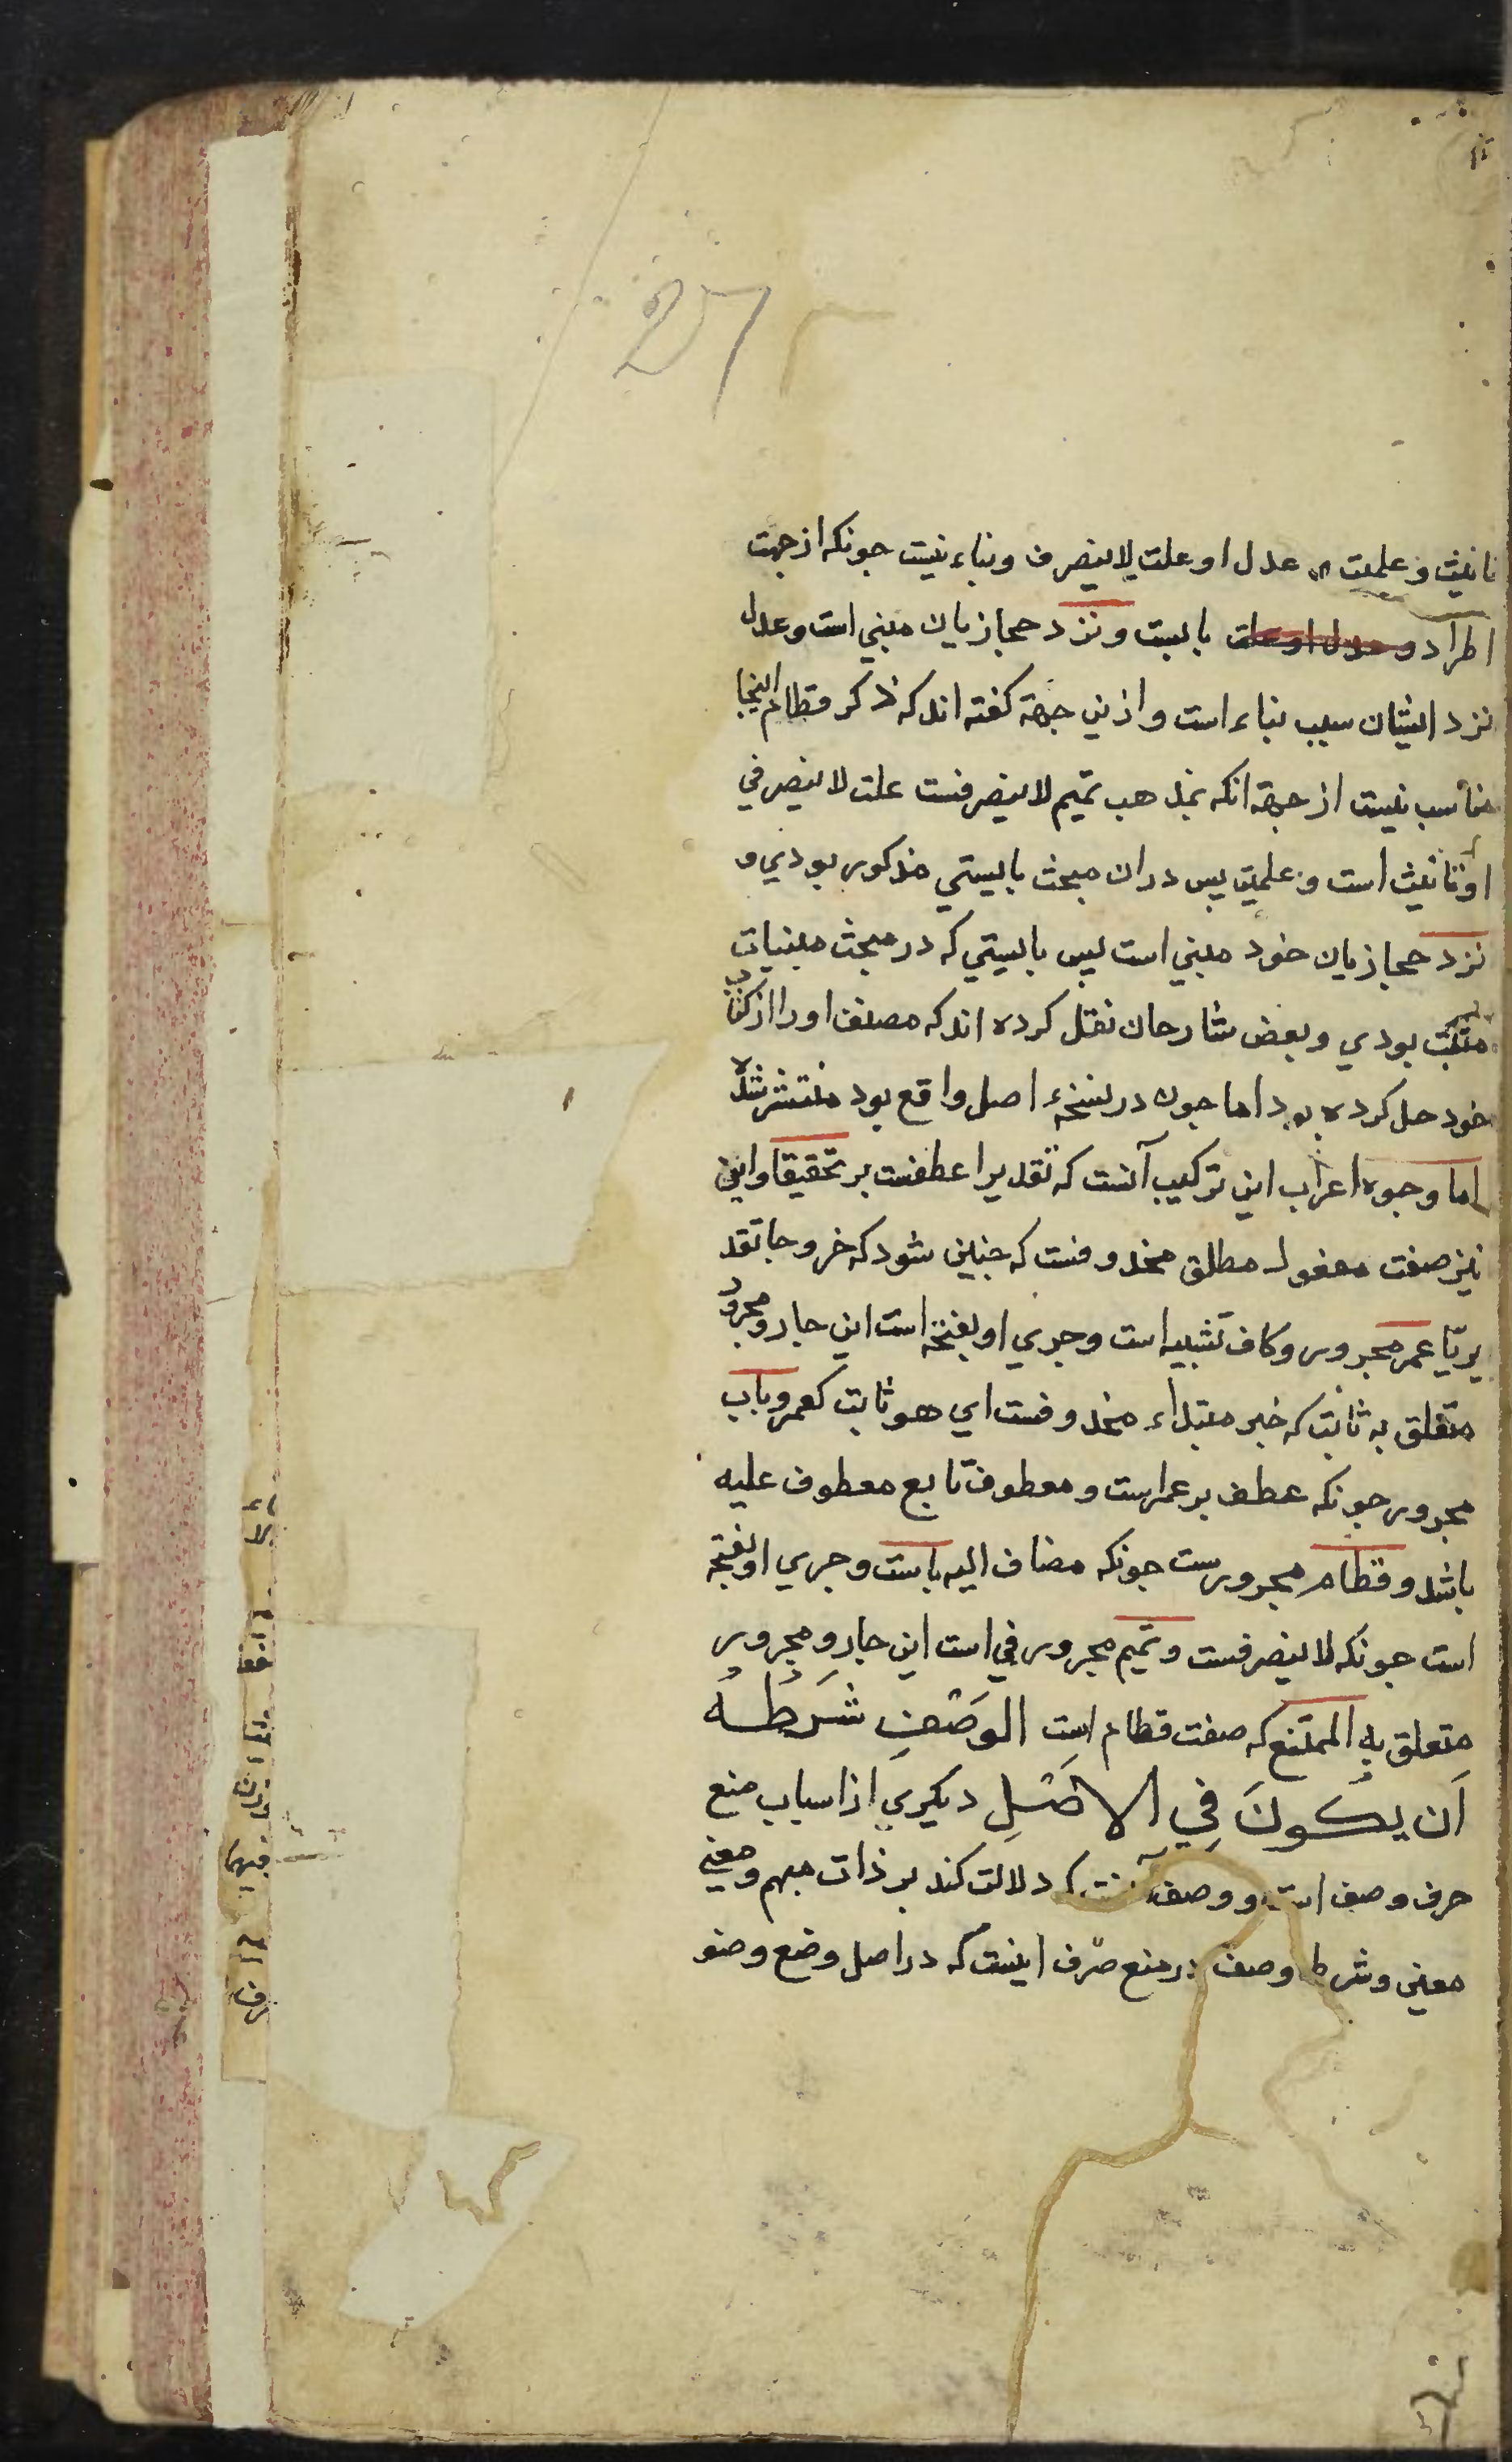 تانیث و علمیت عدل او علت لا ینصرف و بناء نیست جونکه از جهت
اطراد و عدل او علت بابست و نزد حجازیان مبنی است و عدل
نزد ایشان سبب بناء است و ازین جهة کفته اند که ذکر قطام اینجا
مناسب نیست از جهة انکه بمذهب تمیم لا ینصرفست علت لا ینصرفی
او تانیث است و علمیت پس دران مبحث بایستی مذکور بودی و
نزد حجازیان خود مبنی است پس بایستی که در مبحث مبنیات
مثبت بودی و بعض شارحان نقل کرده اند که مصنف او را از کتاب
خود حل کرده بود اما جون در نسخهٔ اصل واقع بود منتشر شده
اما وجوه اعراب این ترکیب آنست که تقدیرا عطفست بر تحقیقا و این
نیز صفت مفعول مطلق محذوفست که جنین شود که خروجا تقد
یریّا عمر مجرور و کاف تشبیه است و جری او بفتحه است این جار و مجرور
متعلق به ثابت که خبر مبتداء محذوفست ای هو ثابت کعمر و باب
مجرور جونکه عطف بر عمر است و معطوف تابع معطوف علیه
باشد و قطام مجرورست جونکه مضاف الیه بابست و جری او بفتحه
است جونکه لا ینصرفست و تمیم مجرور فی است این جار و مجرور
متعلق به الممتنع که صفت قطام است الوَصْف شَرطُهُ
اَن یکُونَ فِي الاصْلِ دیکری از اسباب منع
صرف وصف است و وصف آنست که دلالت کند بر ذات مبهم و معنی
معین و شرط وصف در منع صرف اینست که در اصل وضع وصف